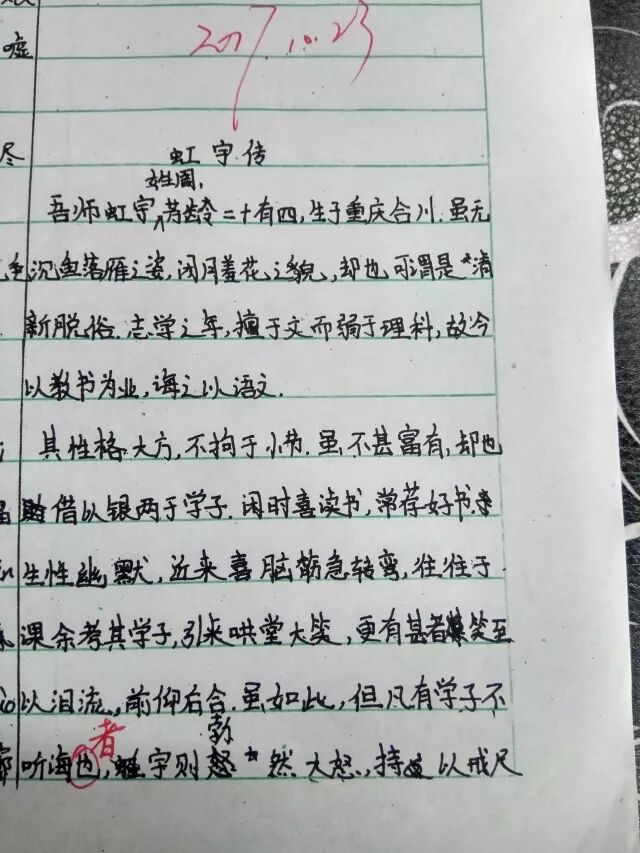 2017.10.23
虚
尽
虹宇传
姓周,
吾师虹宇,芳龄二十有四,生于重庆合川.虽无
沉鱼落雁之姿,闭月羞花之貌,却也可谓是清
新脱俗.志学之年,擅于文而弱于理科,故今
以教书为业,诲之以语文.
其性格大方,不拘于小节.虽不甚富有,却也
借以银两于学子.闲时喜读书,常荐好书
生性幽默,近来喜脑筋急转弯,往往于
课余考其学子,引来哄堂大笑,更有甚者笑至
以泪流,前仰右合.虽如此,但凡有学子不
者
勃
听诲也,宇则然大怒,持以戒尺